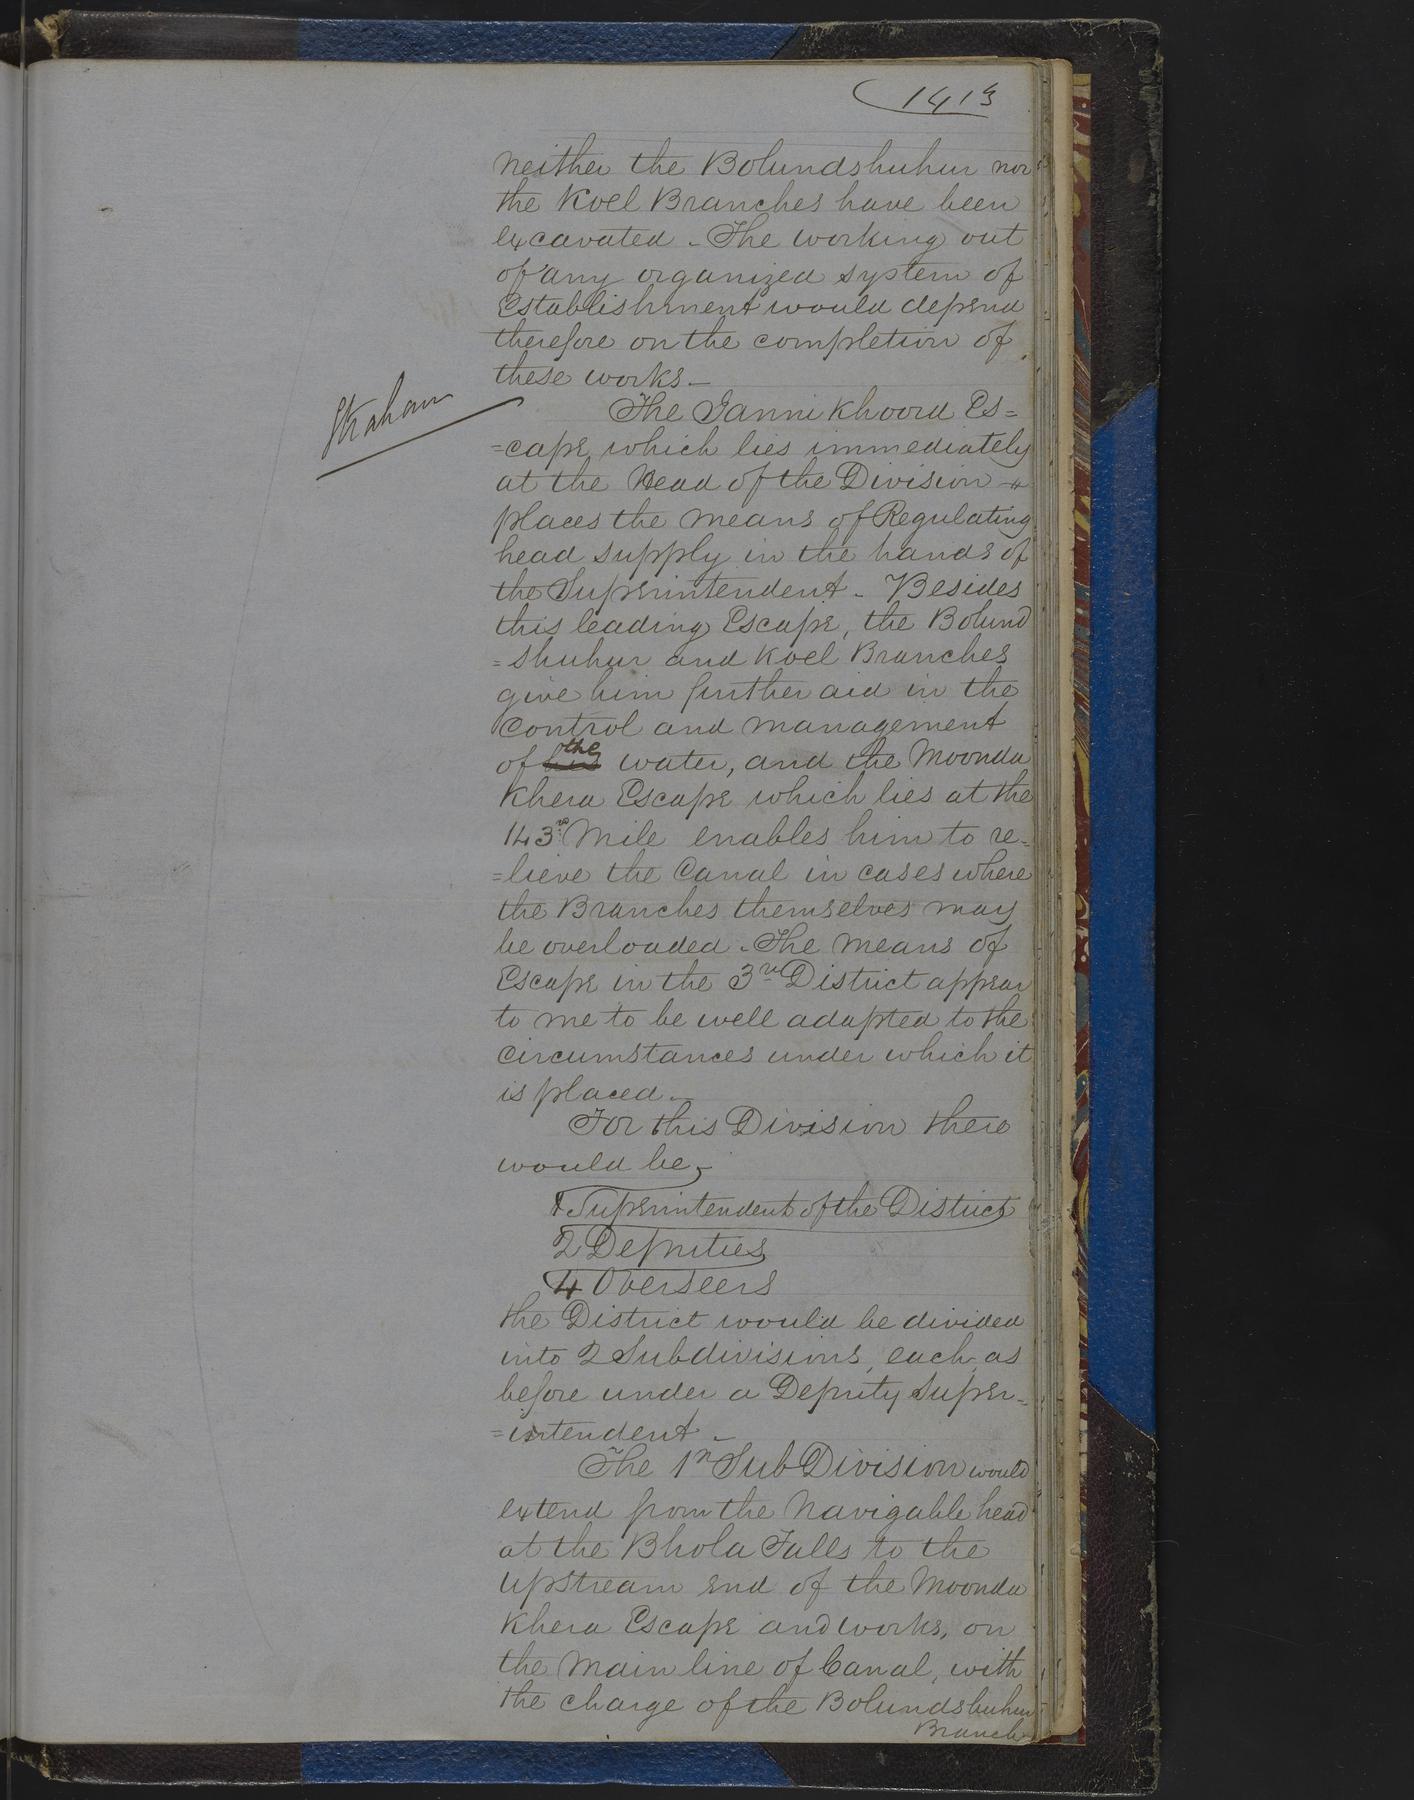 1413
neither the Bolundshuhur nor
the Koel Branches have been
excavated - The working out
of any organized system of
Establishment would depend
therefore on the completion of
these works -
Strahan
The Janni Khoord Es=
=cape which lies immediately
at the Head of the Division -
places the means of Regulating
head supply in the hands of
the Superintendent - Besides
this leading Escape, the Bolund
=shuhur and Koel Branches
give him further aid in the
Control and management
of the water, and the Moonda
Khera Escape which lies at the
143rd Mile enables him to re=
=lieve the Canal in cases where
the Branches themselves may
be overloaded - The means of
Escape in the 3rd District appear
to me to be well adapted to the
circumstances under which it
is placed -
For this Division there
would be -
1 Superintendent of the District
2 Deputies
4 Overseers
the District would be divided
into 2 Subdivisions, each, as
before under a Deputy Super=
=intendent -
The 1st Sub Division would
extend from the Navigable head
at the Bhola Falls to the
upstream end of the Moonda
Khera Escape and works, on
the Main line of Canal, with
the charge of the Bolundshuhur
Branch